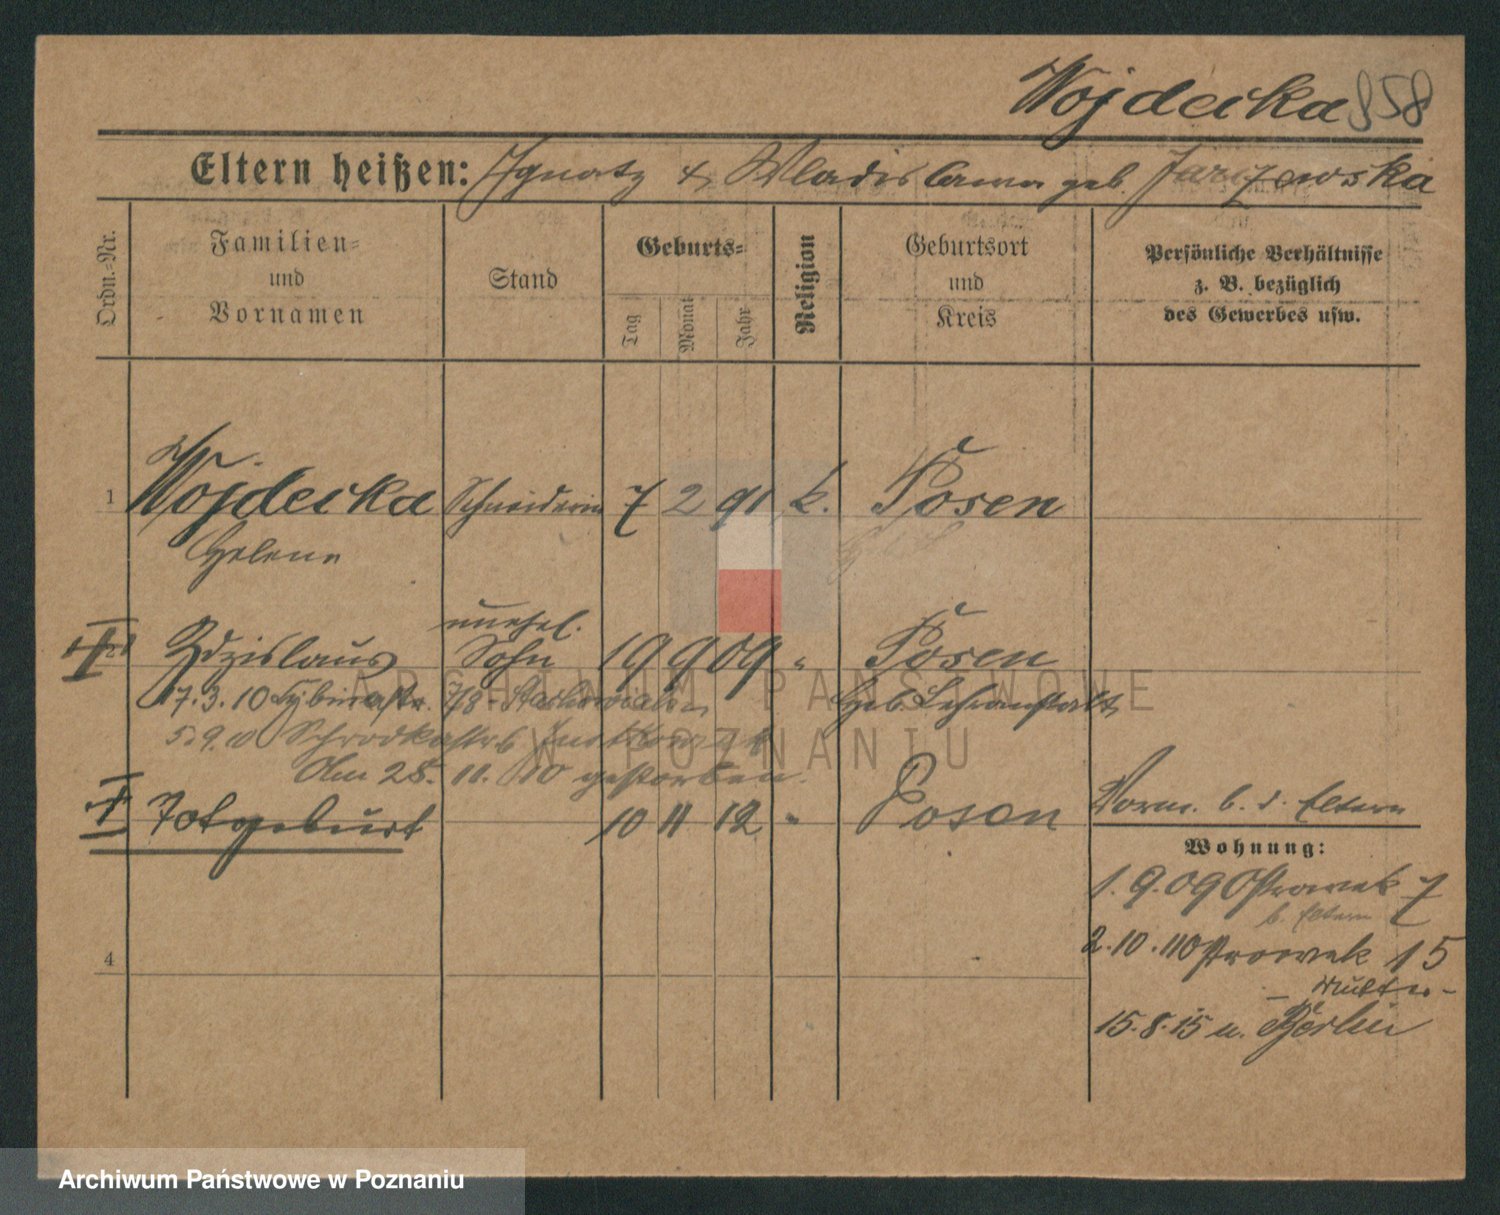 Wojdecka 858
Eltern heißen: Ignatz & Wladislawa geb. Jarzewska
Ordn.-Nr.
Familien- und Vornamen
Stand
Geburts-
Tag
Monat
Jahr
Religion
Geburtsort und Kreis
Persönliche Verhältnisse
z. B. bezüglich
des Gewerbes usw.
1 Wojdecka Schneiderin 7 2 91 k. Posen
Helene
unehel.
2 Zdzislaus Sohn 19 9 09 " Posen
17.3.10 7/8 Geb. Lehranstalt
5.9.10 Schrodkastr 6
Am 28. 11. 10 gestorben.
Totgeburt 10 11 12 " Posen
Vorm. b. d. Eltern
Wohnung:
1.9.09 Ostrowek 7
b. Eltern
2.10.10 Ostrowek 15
4
- Mutter -
15.8.15 n. Berlin
ARCHIWUM PAŃSTWOWE
W POZNANIU
Archiwum Państwowe w Poznaniu